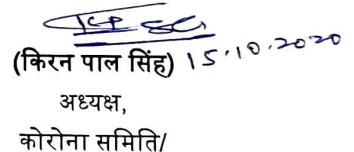 (किरन पाल सिंह) 15.10.2020
अध्यक्ष,
कोरोना समिति/